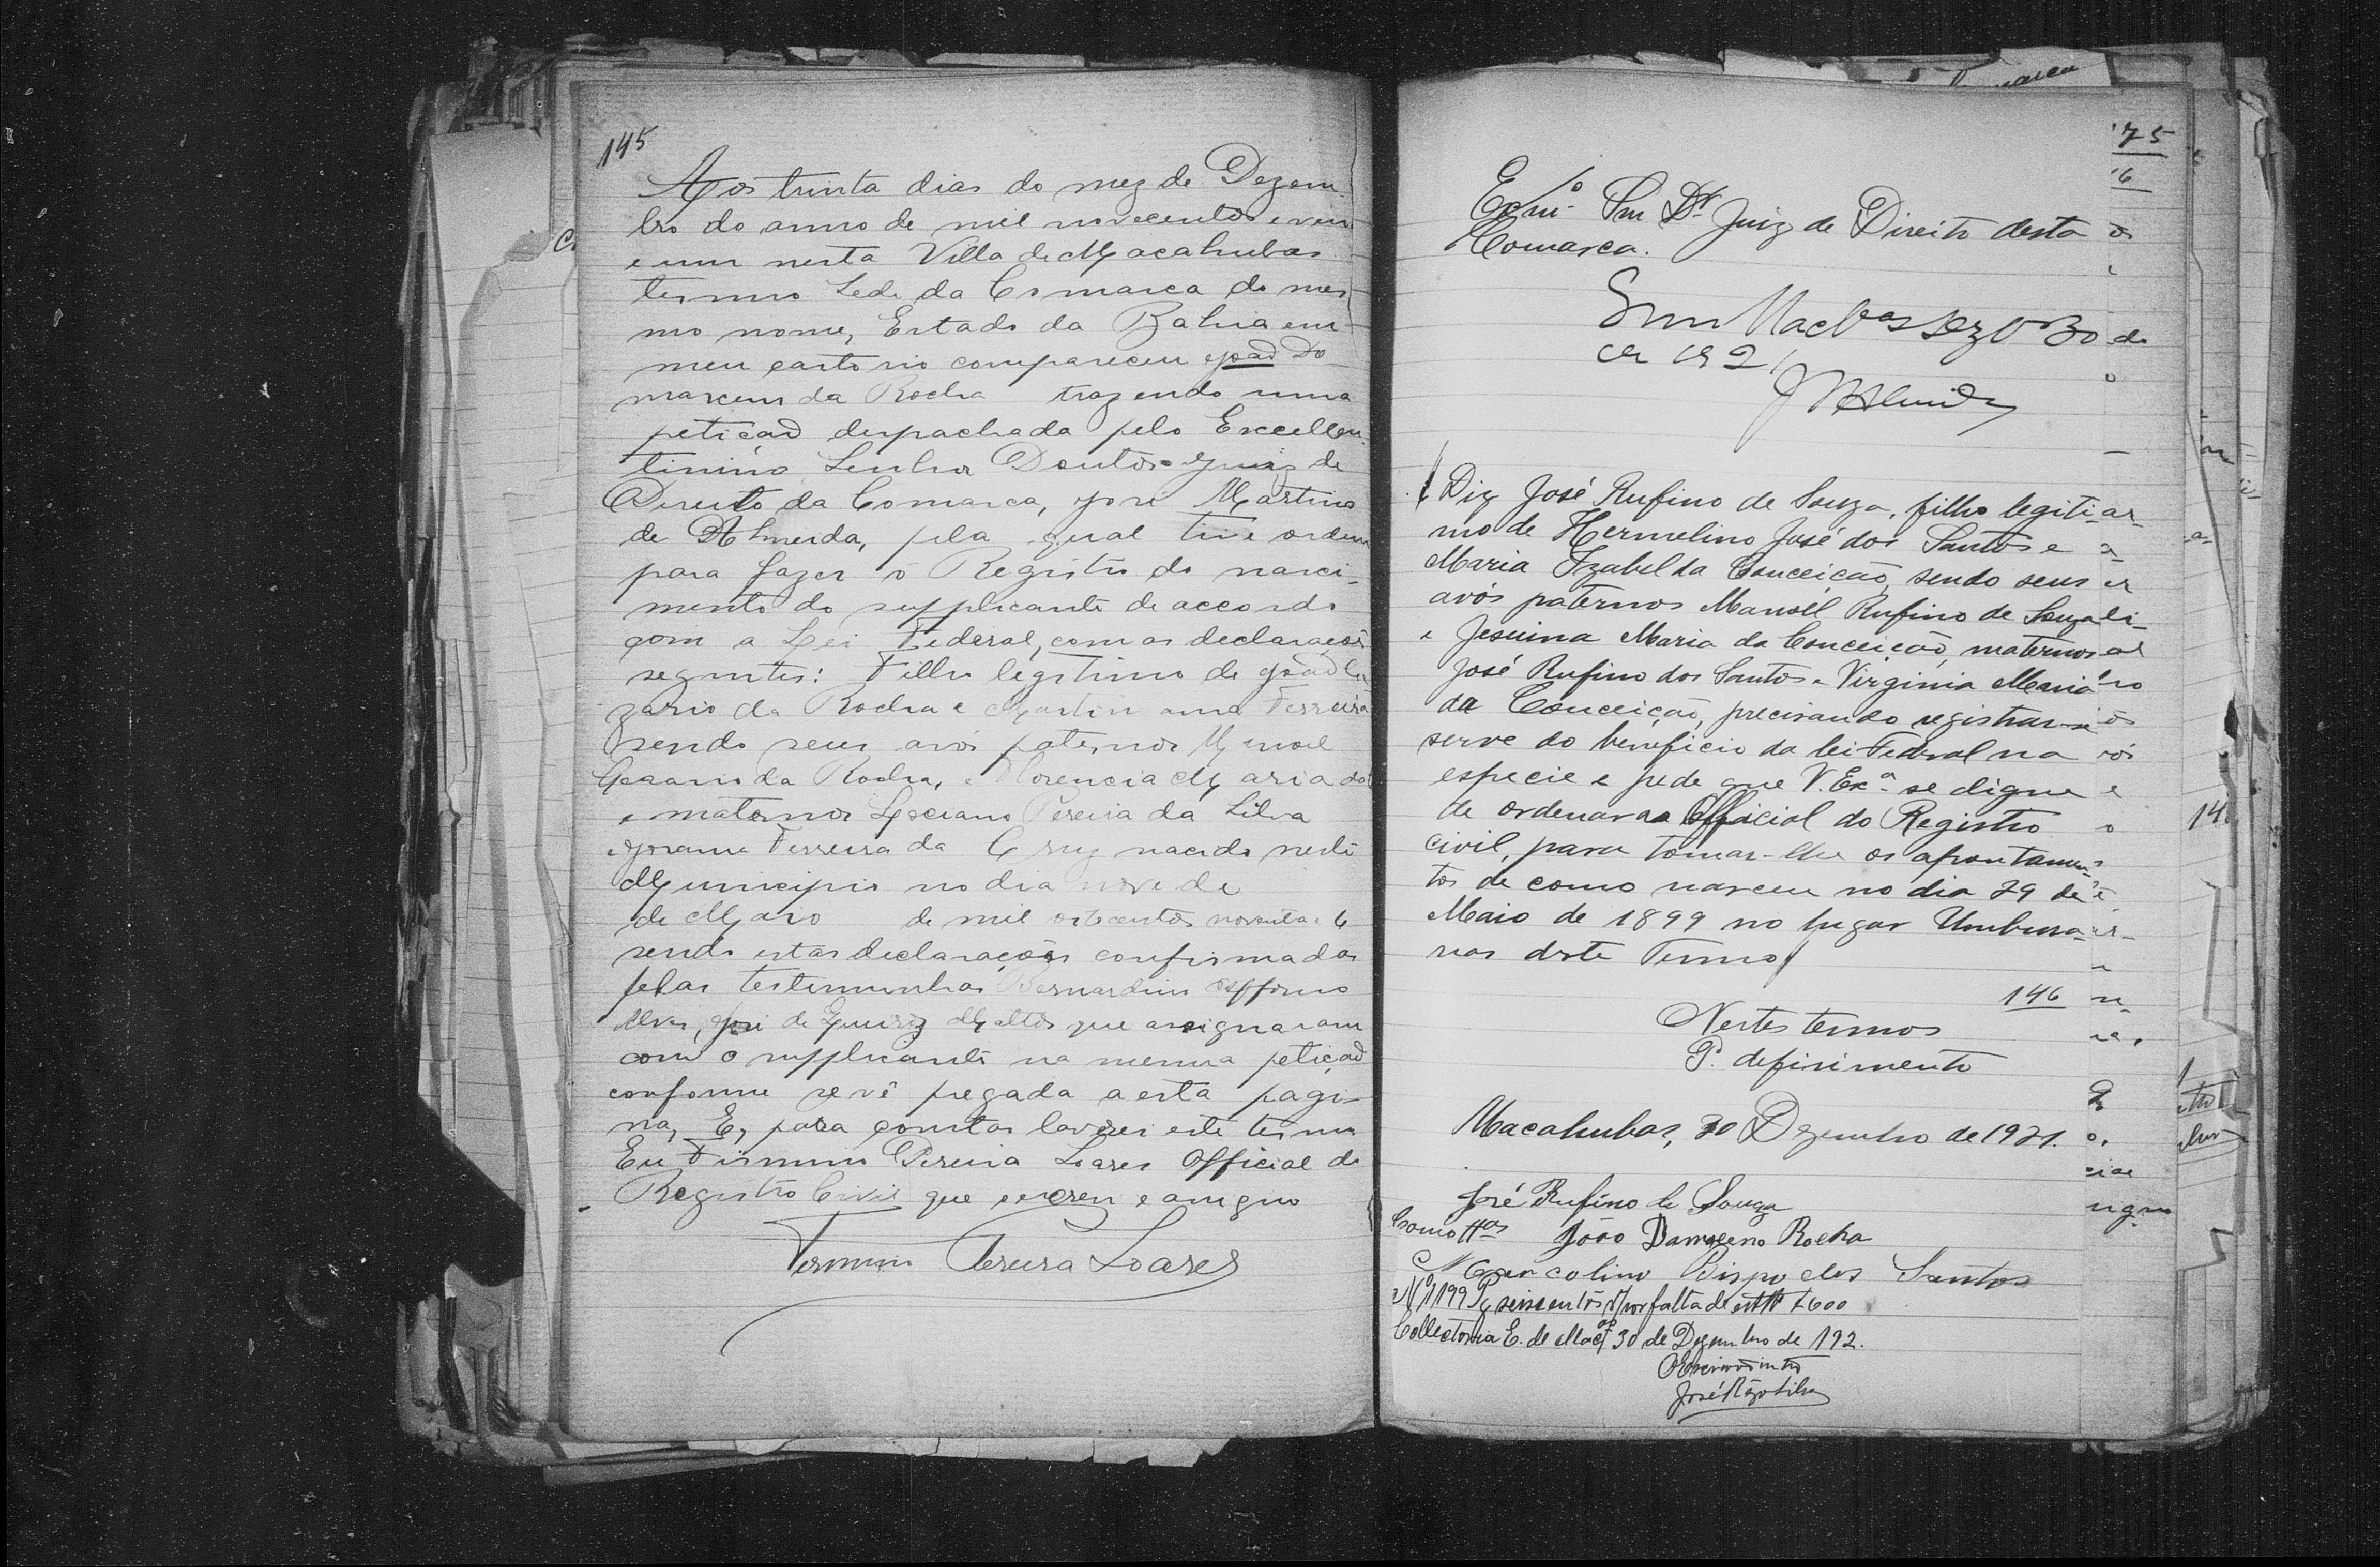 145
Aos trinta dias do mez de Dezem
bro do anno de mil novecentos e vin
e um nesta Villa de Macahubas
termo Sede da Comarca do mes
mo nome, Estado da Bahia em
meu cartorio compareceu João Do
masceno da Rocha trazendo uma
petição despachada pelo Excellen
tissimo Senhor Doutor Juiz de
Direito da Comarca, José Martins
de Almeida, pela qual tive ordem
para fazer o Registro do nasci-
mento do supplicante de accordo
com a Lei Federal, com as declarações
seguintes: Filho legitimo de João
da Rocha e Ferreira
sendo seus avós paternos Manoel
da Rocha, e Florencia Maria
e maternos Pereira da Silva
e Joanna Ferreira da Cruz nacido neste
Municipio no dia nove de
de Maio de mil oitocentos noventa e 6
sendo estas declarações confirmadas
pelas testemunhas Bernardino
Alves, José de Mattos que assignaram
com o supplicante na mesma petição
conforme se vê pregada a esta pagi-
na, E, para constar lavrei este termo
Eu Firmino Pereira Soares Official do
Registro Civil que escrevi e assigno
Firmino Pereira Soares
75
6
Exmo Snr Dr Juiz de Direito desta
Comarca.
30 de
1921
Diz José Rufino de Souza, filho legiti-
mo de Hermelino José dos Santos e
Maria Izabel da Conceição, sendo seus
avós paternos Manoél Rufino de Souza
e Jesuina Maria da Conceição, maternos
José Rufino dos Santos e Virginia Maria
da Conceição, precisando registrar-se
serve do beneficio da lei Federal na
especie e pede que V. Exª se digne
de ordenar ao Official do Registro
civil, para tomar-lhe os apontamen-
tos de como nasceu no dia 29 de
Maio de 1899 no lugar Umbura-
nas deste Termo
146
Nestes termos
P. deferimento
Macahubas, 30 Dezembro de 1921.
José Rufino de Souza
Como ttas João Damaceno Rocha
Marcolino Bispo dos Santos
Nº 1199 Pg seiscentos rs por falta de estª $600
Collectoria E. de Macas 30 de Dezembro de 192.
O Escrivão intº
José Silva
14